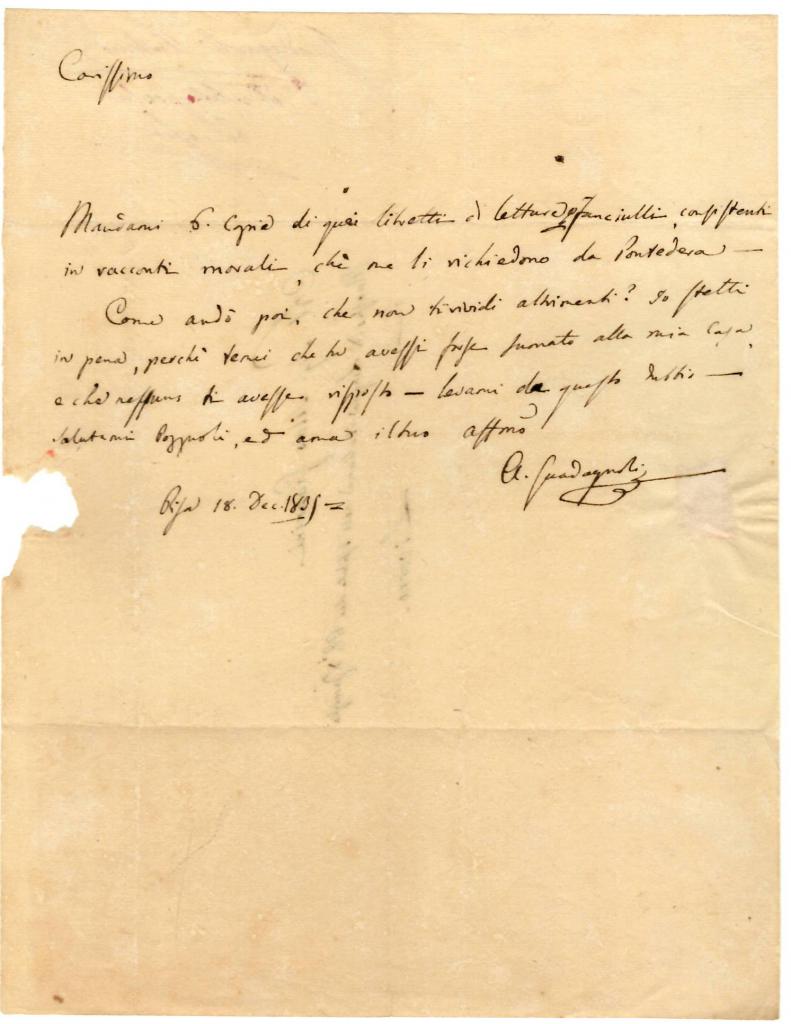 Carissimo
Mandami 6. Copie di quei libretti di letture pr fanciulli, consistenti
in racconti morali, chè me li richiedono da Pontedera —
Come andò poi, che non ti rividi altrimenti? Io stetti
in pena, perchè temei che tu avessi forse suonato alla mia Casa,
e che nessuno ti avesse risposto — levami da questo dubbio —
Salutami Pozzuoli, ed ama il tuo affmo
A. Guadagnoli
Pisa 18. Dec. 1835 =